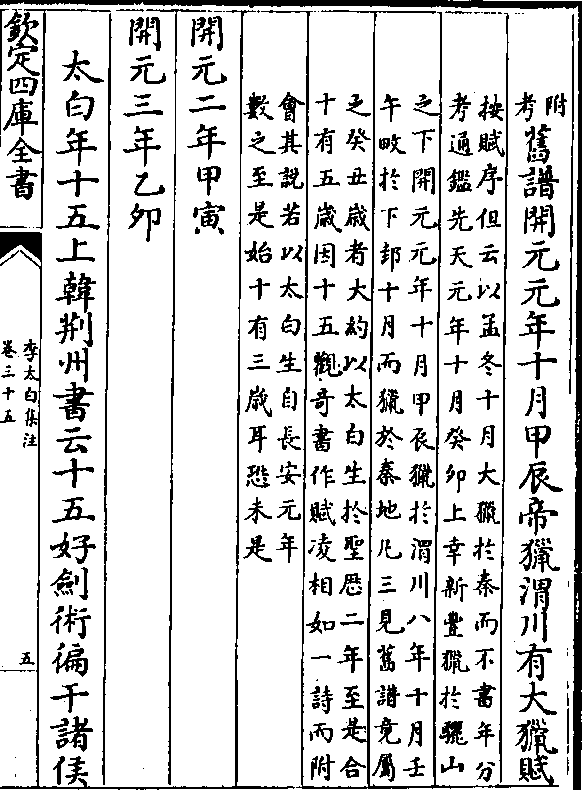 附考舊譜開元元年十月甲辰帝獵渭川有大獵賦
按賦序但云以孟冬十月大獵於秦而不書年分
考通鑑先天元年十月癸卯上幸新豐獵於驪山
之下開元元年十月甲辰獵於渭川八年十月壬
午畋於下邽十月而獵於秦地凡三見舊譜竟屬
之癸丑歲者大約以太白生於聖厯二年至是合
十有五歲因十五觀奇書作賦凌相如一詩而附
會其說若以太白生自長安元年
數之至是始十有三歲耳恐未是
開元二年甲寅
開元三年乙卯
太白年十五上韓荆州書云十五好劍術徧干諸侯
欽定四庫全書
李太白集注
卷三十五
五